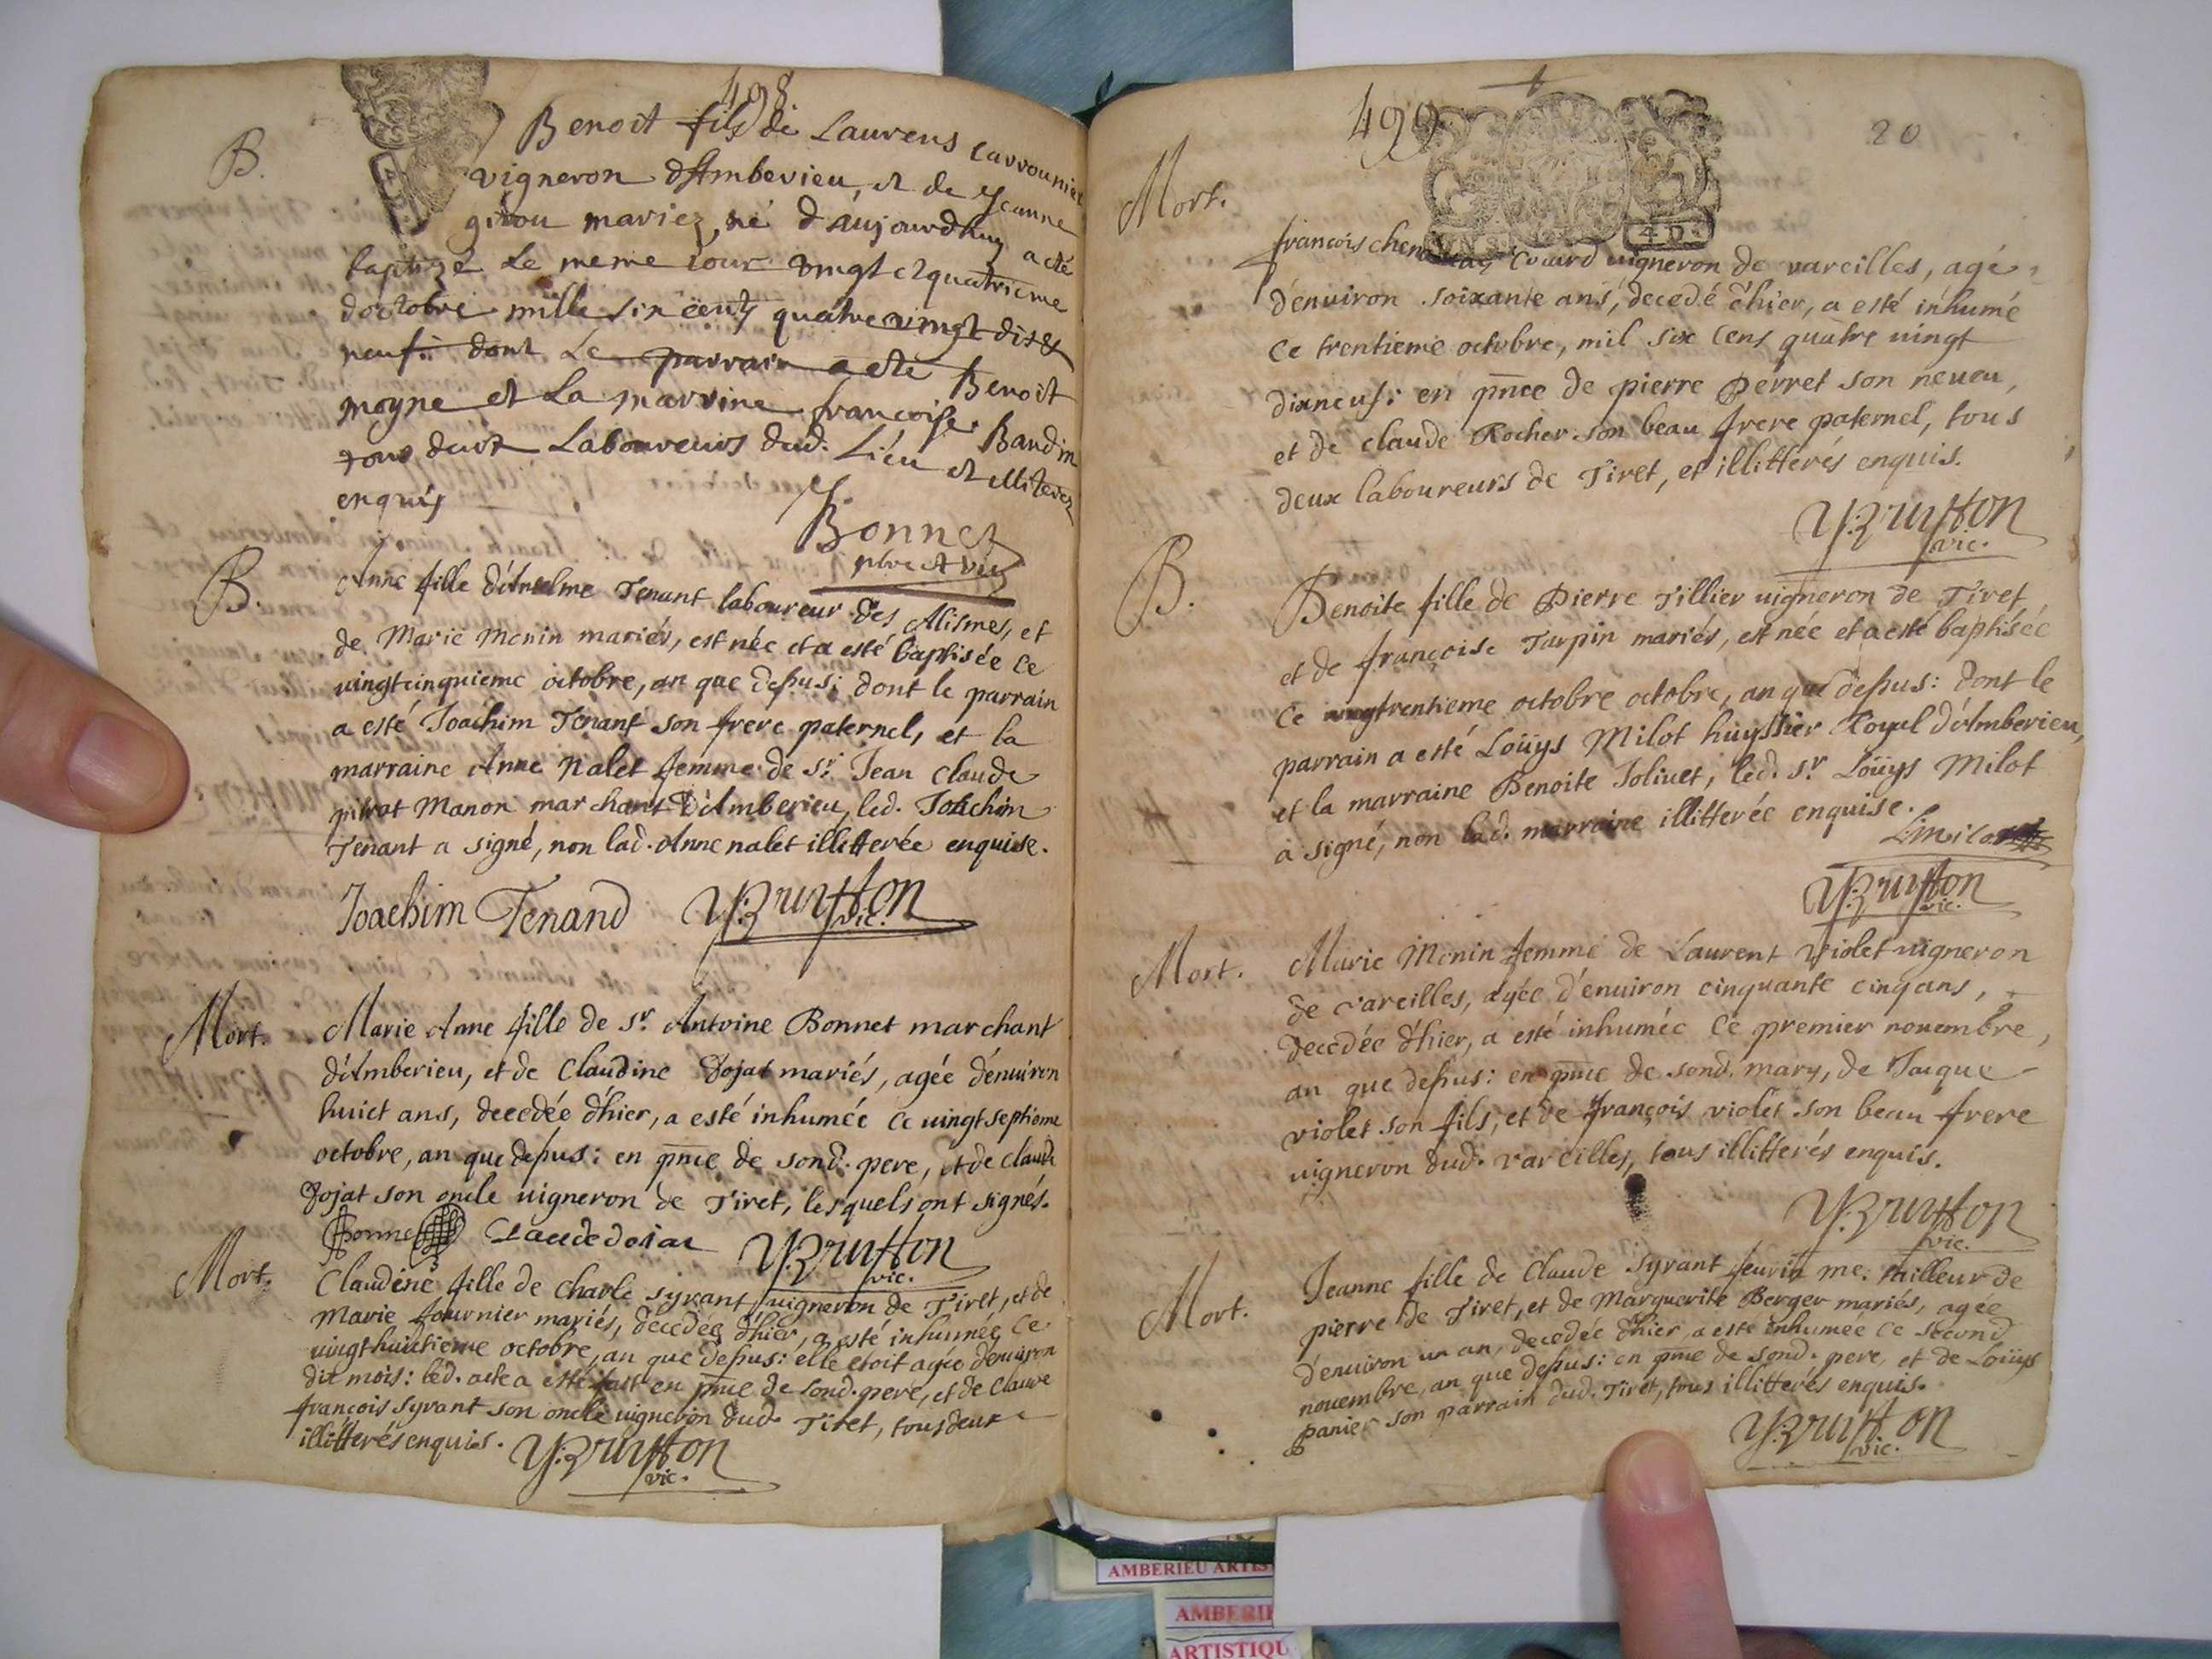 498
B.
Benoit fils de Laurens Carrounier
vigneron d'Amberieu, et de Jeanne
gitou mariez, né d'aujourdhuy a eté
baptizé Le meme iour vingt et quatrieme
d'octobre mille six cents quatre vingt dix et
neuf: dont Le parrain a eté Benoit
moyne et La marrine francoise Baudin
tous deux Laboureurs dud. Lieu et illiterez
enquis
Bonnet
pbre et vic
B.
Anne fille d'Anselme Tenant laboureur des Alismes, et
de Marie Monin mariés, est née et a esté baptisée ce
uingtcinquieme octobre, an que depus: dont le parrain
a esté Joachim Tenant son frere paternel, et la
marraine Anne Nalet femme de Sr. Jean Claude
Manon marchant d'Amberieu, led. Joachim
Tenant a signé, non lad. Anne nalet illitterée enquise.
Joachim Tenand
vic.
Mort.
Marie Anne fille de Sr. Antoine Bonnet marchant
d'Amberieu, et de Claudine Dojat mariés, agée d'enuiron
huict ans, decedée d'hier, a esté inhumée ce uingtseptieme
octobre, an que depus: en pnce de sond. pere, et de Claude
Dojat son oncle uigneron de Tiret, lesquels ont signés.
Bonnet Claudedoiat
vic.
Mort.
Claudine fille de Charle Syrant uigneron de Tiret, et de
Marie fournier mariés, decedée d'hier, a esté inhumée ce
uingthuictieme octobre, an que depus: elle etoit agée d'enuiron
dix mois: led. acte a esté fait en pnce de sond. pere, et de Claude
françois Syrant son oncle uigneron dud. Tiret, tous deux
illitterés enquis.
vic.
499
20
4 D.
Mort.
françois Couard uigneron de vareilles, agé
d'enuiron soixante ans, decedé d'hier, a esté inhumé
ce trentieme octobre, mil six cens quatre uingt
dixneuf: en pnce de pierre Perret son neueu,
et de claude Rocher son beau frere paternel, tous
deux laboureurs de Tiret, et illitterés enquis.
vic.
B.
Benoite fille de Pierre Tillier uigneron de Tiret
et de françoise Tarpin mariés, est née et a esté baptisée
ce trentieme octobre octobre, an que depus: dont le
parrain a esté Loüys Milot huyssier Royal d'Amberieu,
et la marraine Benoite Joliuet, led. Sr Loüys Milot
a signé, non lad. marraine illitterée enquise.
vic.
Mort.
Marie Monin femme de Laurent Violet uigneron
de vareilles, agée d'enuiron cinquante cinq ans,
decedée d'hier, a esté inhumée ce premier nouembre,
an que depus: en pnce de sond. mary, de Jacque
violet son fils, et de françois violet son beau frere
uigneron dud. vareilles, tous illitterés enquis.
vic.
Mort.
Jeanne fille de Claude Syrant me. tailleur de
pierre de Tiret, et de Marguerite Berger mariés, agée
d'enuiron un an, decedée d'hier, a esté inhumée ce second
nouembre, an que depus: en pnce de sond. pere, et de Loüys
panier son parrain dud. Tiret, tous illitterés enquis.
vic.
AMBERIEU ARTIS
AMBERIE
ARTISTIQU